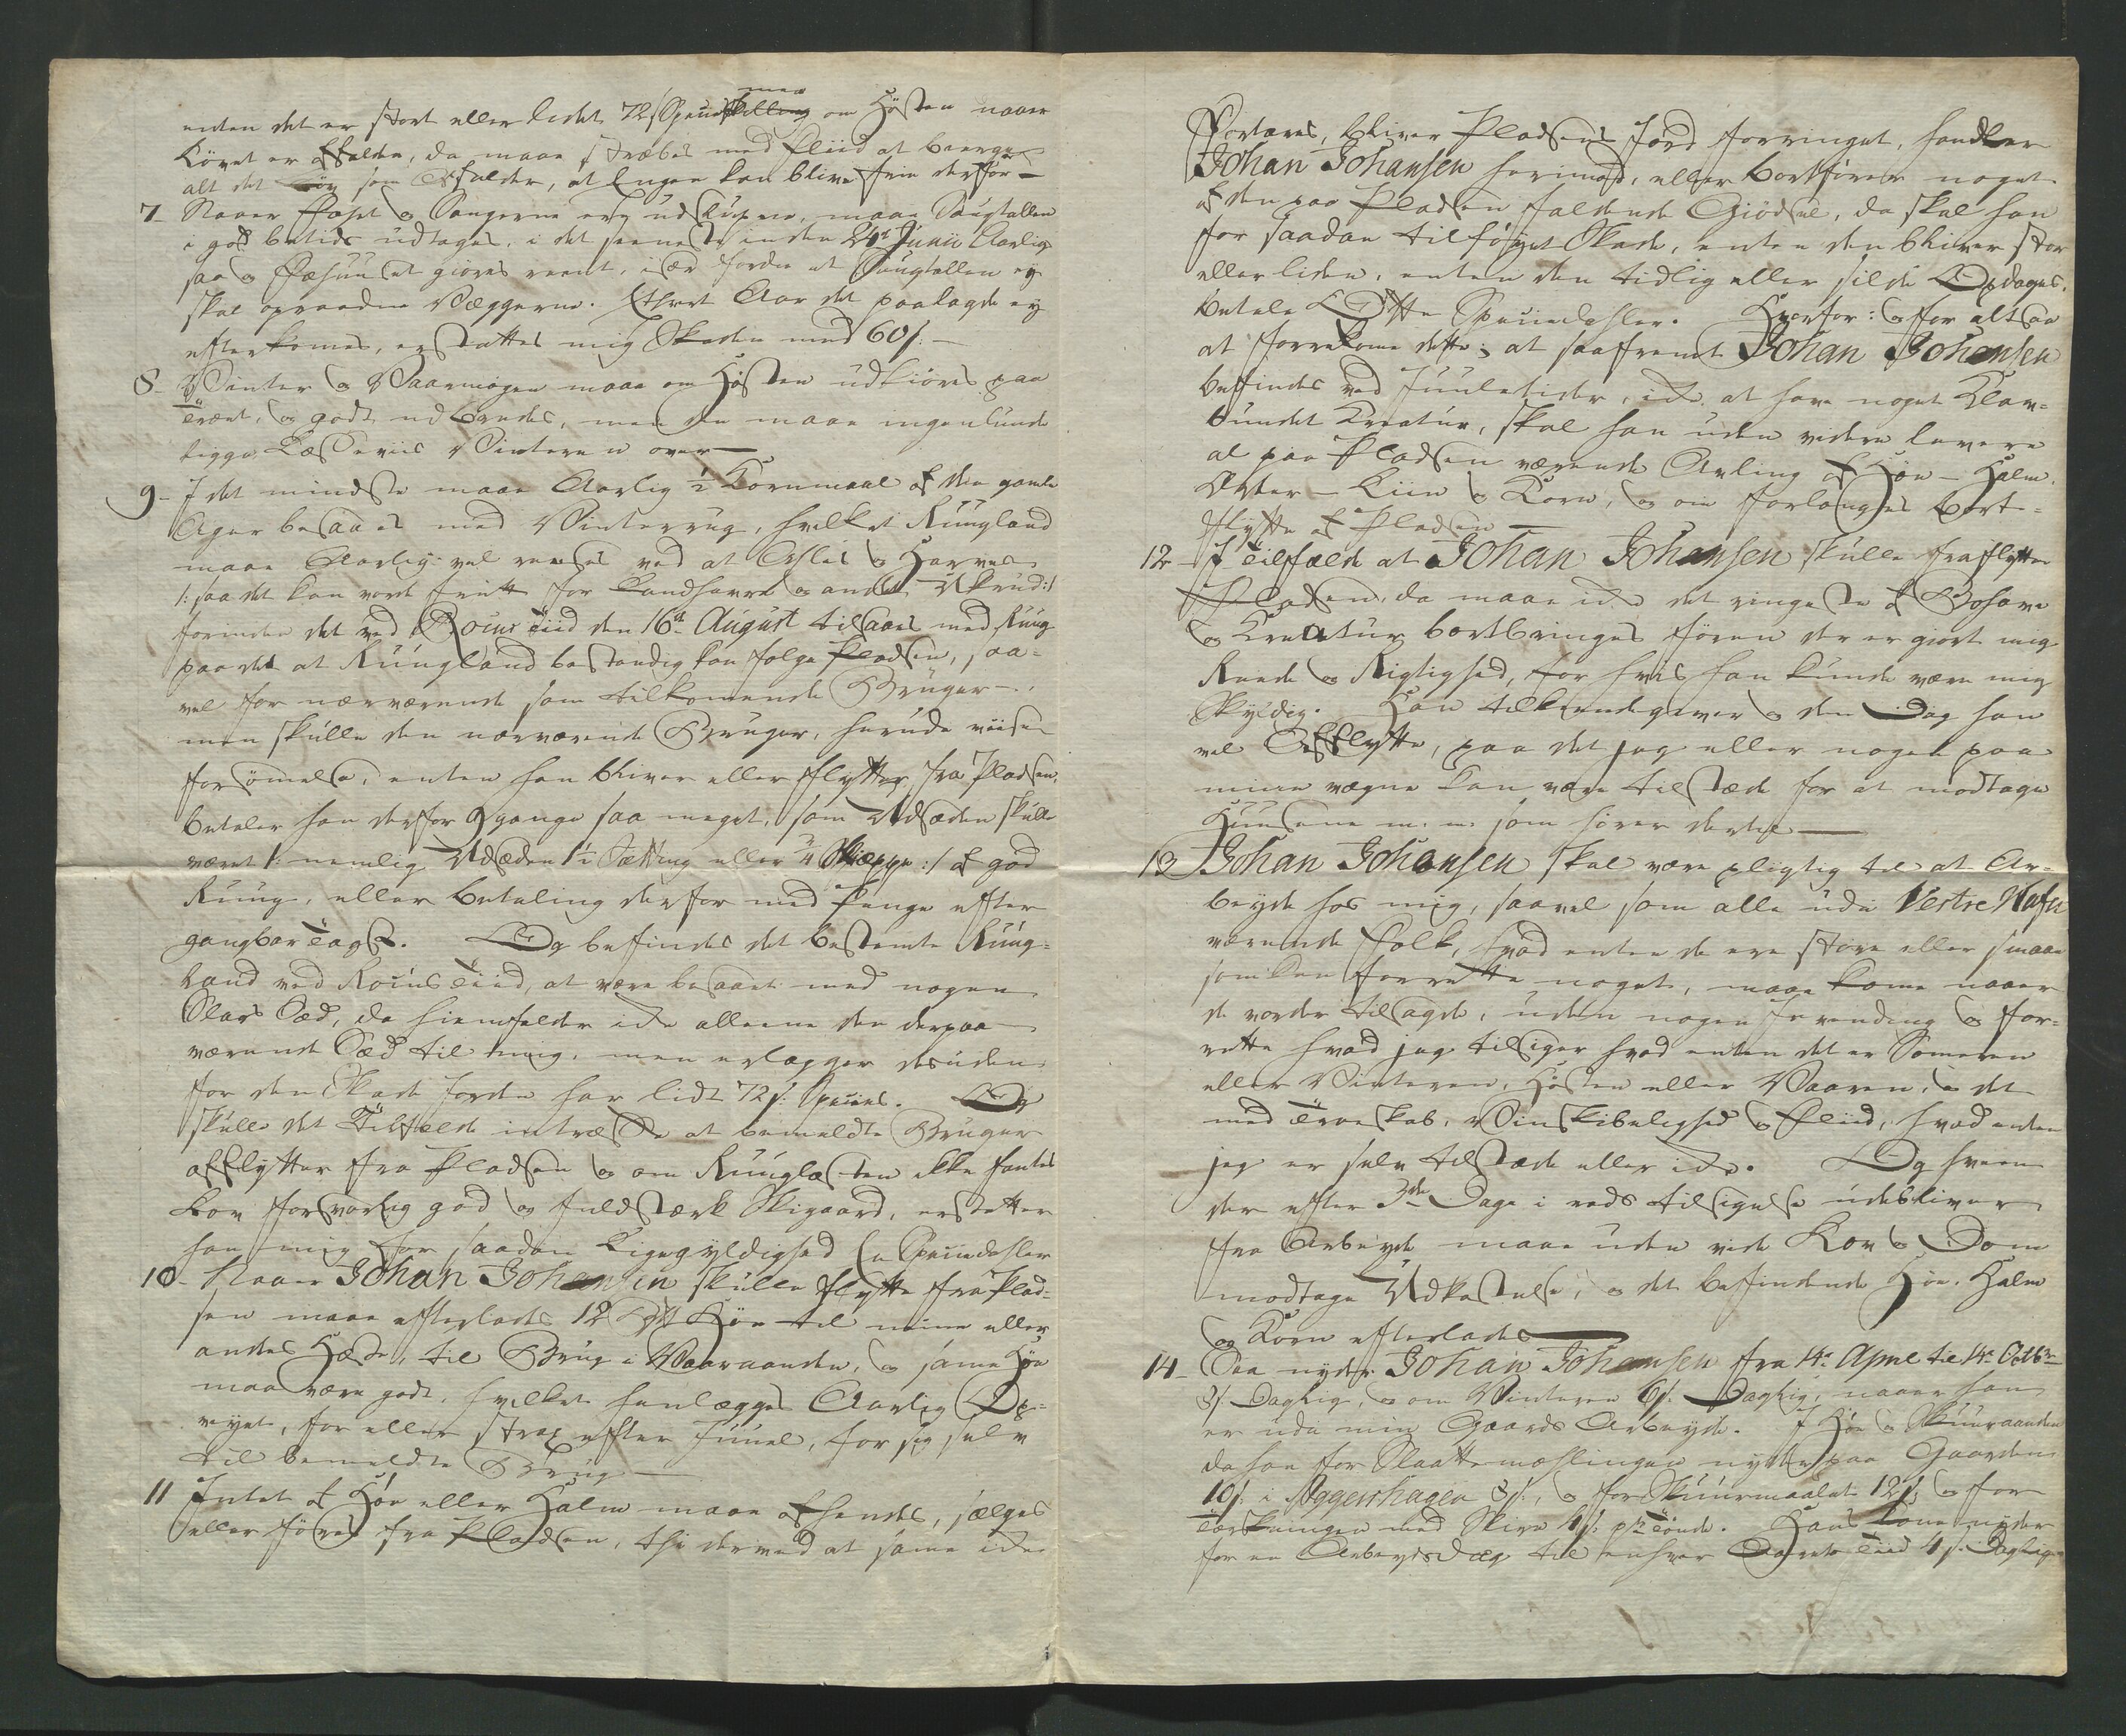 enten det er stort eller lidet 72 s Speciesskilling men om Høsten naar
Løvet er affalden, da maae stræbes med Fliid at bierge
alt det Løv som affalder, at Engen kan blive frie derfor —
7- Naaer Fæhet og Saugerne ere udslupne, maae Saugtallen
i god betids udtages, i det seeneste inden 24de Junii Aarlig
saa og Fæhuuset giøres reent, især fordi at Saugtallen ey
skal opraadne Væggerne. Ethvert Aar det paalagde ey
efterkomes, erstattes mig Skaden med 60 s: —
8- Winter og Vaarmøgen maae om Høsten udkiøres paa
Træet, og godt udbredes, men den maae ingenlunde
ligge Læsseviis Winteren over —
9- I det mindste maae Aarlig ½ Kornmaal af den gamle
Ager besaaes med Winterrug, hvilket Ruugland
maae Aarlig vel renses ved at Asles og Harves
/: saa det kan vorde friit for Landhavre og andet Ukrud :/
forinden det ved Rocus Tiid den 16de August tilsaaes med Ruug
paa det at Ruugland bestandig kan følge Pladsen, saa-
vel for nærværende som tilkomende Bruger —
men skulle den nærværende Bruger, herudi viise
forsømelse, enten han bliver eller flytter fra Pladsen,
betaler han derfor 9 gange saa meget, som Udsæden skulle
været /: nemlig Udsæden 1½ Sætting eller ¼ Skieppe :/ af god
Ruug, eller betaling derfor med Penge efter
gangbar Tagst. Og befindes det bestemte Ruug-
Land ved Rocus Tiid, at være besaaet med nogen
Slags Sæd, da hiemfalder icke alleene den derpaa
værende Sæd til mig, men erlægger desuden
for den Skade Jorden har lidt 72 s: Species. Og
skulle det Tilfælde indtræffe at bemeldte Bruger
afflytter fra Pladsen og om Ruuglæsten ikke fantes
Lov forsvarlig god og fuldstærk Skigaard, erstatter
han mig for saadan Ligegyldighed En Speciedahler
10- Naaer Johan Johansen skulle flytte fra Plad-
sen maae efterlades 12 Høe til mine eller
andes Heste, til Brug i Vaaraanden, og same Høe
maa være godt, hvilket henlægges Aarlig Op-
veyet, før eller strax efter Juuel, for sig selv
til bemeldte Brug —
11 Intet af Høe eller Halm maae afhendes, sælges
eller føres fra Pladsen, thi derved at same icke
Fortæres, bliver Pladsens Jord forringet, handler
Johan Johansen herimod, eller bortfører noget
af den paa Pladsen faldende Giødsel, da skal han
for saadan tilføyet Skade, enten den bliver stor
eller liden, enten den tidlig eller silde Opdages,
betale Otte Speciedahler. Hvorfor: og for altsaa
at forrekome dette; at saafremt Johan Johansen
befindes ved Juuletider, icke at have noget Klov-
bundet Kreatur, skal han uden videre levere
al paa Pladsen værende Avling af Høe — Halm,
Erter — Liin og Korn, og om forlanges bort-
flytte af Pladsen —
12- I Tilfælde at Johan Johansen skulle fraflytte
Pladsen, da maae icke det ringeste af Bohave
og Kreatur bortbringes føren der er giort mig
Reede og Rigtighed, for hvis han kunde være mig
Skyldig. Han tilkiendegiver og den Dag han
vel Afflytte, paa det jeg eller nogen paa
mine vægne kan være tilstæde for at modtage
Huusene m: m: som hører dertil —
13 Johan Johansen skal være pligtig til at Ar-
beyde hos mig, saavel som alle udi Vestre Hafn
værende Folk, hvad enten de ere støre eller smaae
som kan forrette noget, maae kome naaer
de vorder tilsagde, uden nogen Invending og for-
rette hvad jeg tilsiger hvad enten det er Someren
eller Winteren, Høsten eller Vaaren, og det
med Troeskab, Winskibelighed og Fliid, hvad enten
jeg er selv tilstæde eller icke. Og hveem
der efter 3de Dage i reds tilsigelse udebliver
fra Arbeyde maae uden vide Lov og Dom
modtage Udkastelse, og det befindende Høe, Halm
og Korn efterlades —
14- Saa nyder Johan Johansen fra 14de April til 14de Octbr
8 s Daglig, og om Winteren 6 s. Daglig, naaer han
er udi min Gaards Arbeyde. I Høe og Skuuraanden
da han for Slaattemæhlingen nyder paa Gaarden
10 s: i Aggershagen 8 s:, og for Skuurmaalet 12 s: og for
Tærskningen med Skiva 4 s: pr Tønde. Hans Kone nyder
for en Arbeydsdag til enhver Aarets Tiid 4 s. Daglig